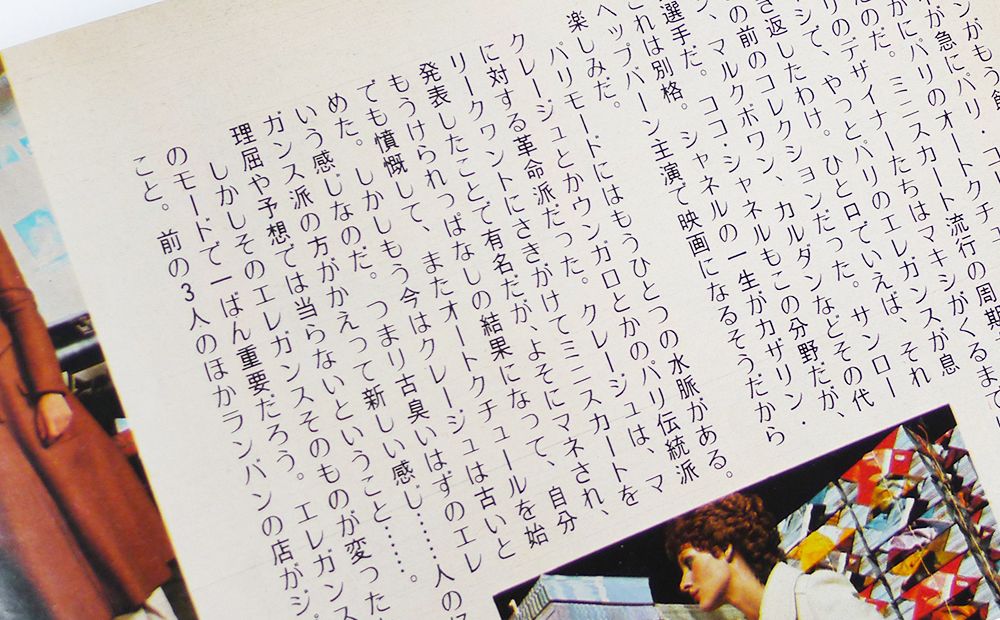 ンがもう
が急にパリ・コ
かにパリのオートクチュ
たのだ。ミニスカート流行の周期
りのデザイナーたちはマキシがくるまで
シて、やっとパリのエレガンスが息
き返したわけ。ひと口でいえば、それ
の前のコレクションだった。サンロー
ン、マルクボワン、カルダンなどその代
選手だ。ココ・シャネルもこの分野だが、
これは別格。シャネルの一生がカザリン・
ヘップバーン主演で映画になるそうだから
楽しみだ。
パリモードにはもうひとつの水脈がある。
クレージュとかウンガロとかのパリ伝統派
に対する革命派だった。クレージュは、マ
リークヮントにさきがけてミニスカートを
発表したことで有名だが、よそにマネされ、
もうけられっぱなしの結果になって、自分
でも憤慨して、またオートクチュールを始
めた。しかしもう今はクレージュは古いと
いう感じなのだ。つまり古臭いはずのエレ
ガンス派の方がかえって新しい感じ……人の
理屈や予想では当らないということ……。
しかしそのエレガンスそのものが変った
のモードで一ばん重要だろう。エレガンス
こと。前の3人のほかランバンの店がジ